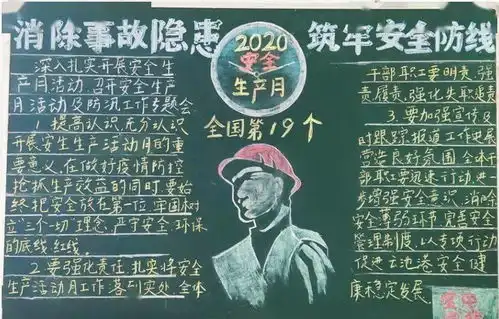 消除事故隐患
2020
安全
生产月
筑牢安全防线
全国第19个
深入扎实开展安全生
产月活动,召开安全生产
月活动及防汛工作专题会
1.提高认识,充分认识
开展安生生产活动月的重
要意义,在做好疫情防控
抢抓生产效益的同时,要始
终把安全放在第一位,牢固树
立"三个一切"理念,严守安全、环保
的底线,红线。
2.要强化责任,扎实将安全
生产活动月工作落到实处,全体
干部职工要明责,强
责履责,强化失职追责
3.要加强宣传及
时跟踪报道工作进展
营造良好氛围,全体干
部职工要迅速行动,进一
步增强安全意识,消除
安全薄弱环节,完善安全
管理制度,以专项行动
促进 池港安全健
康稳定发展。